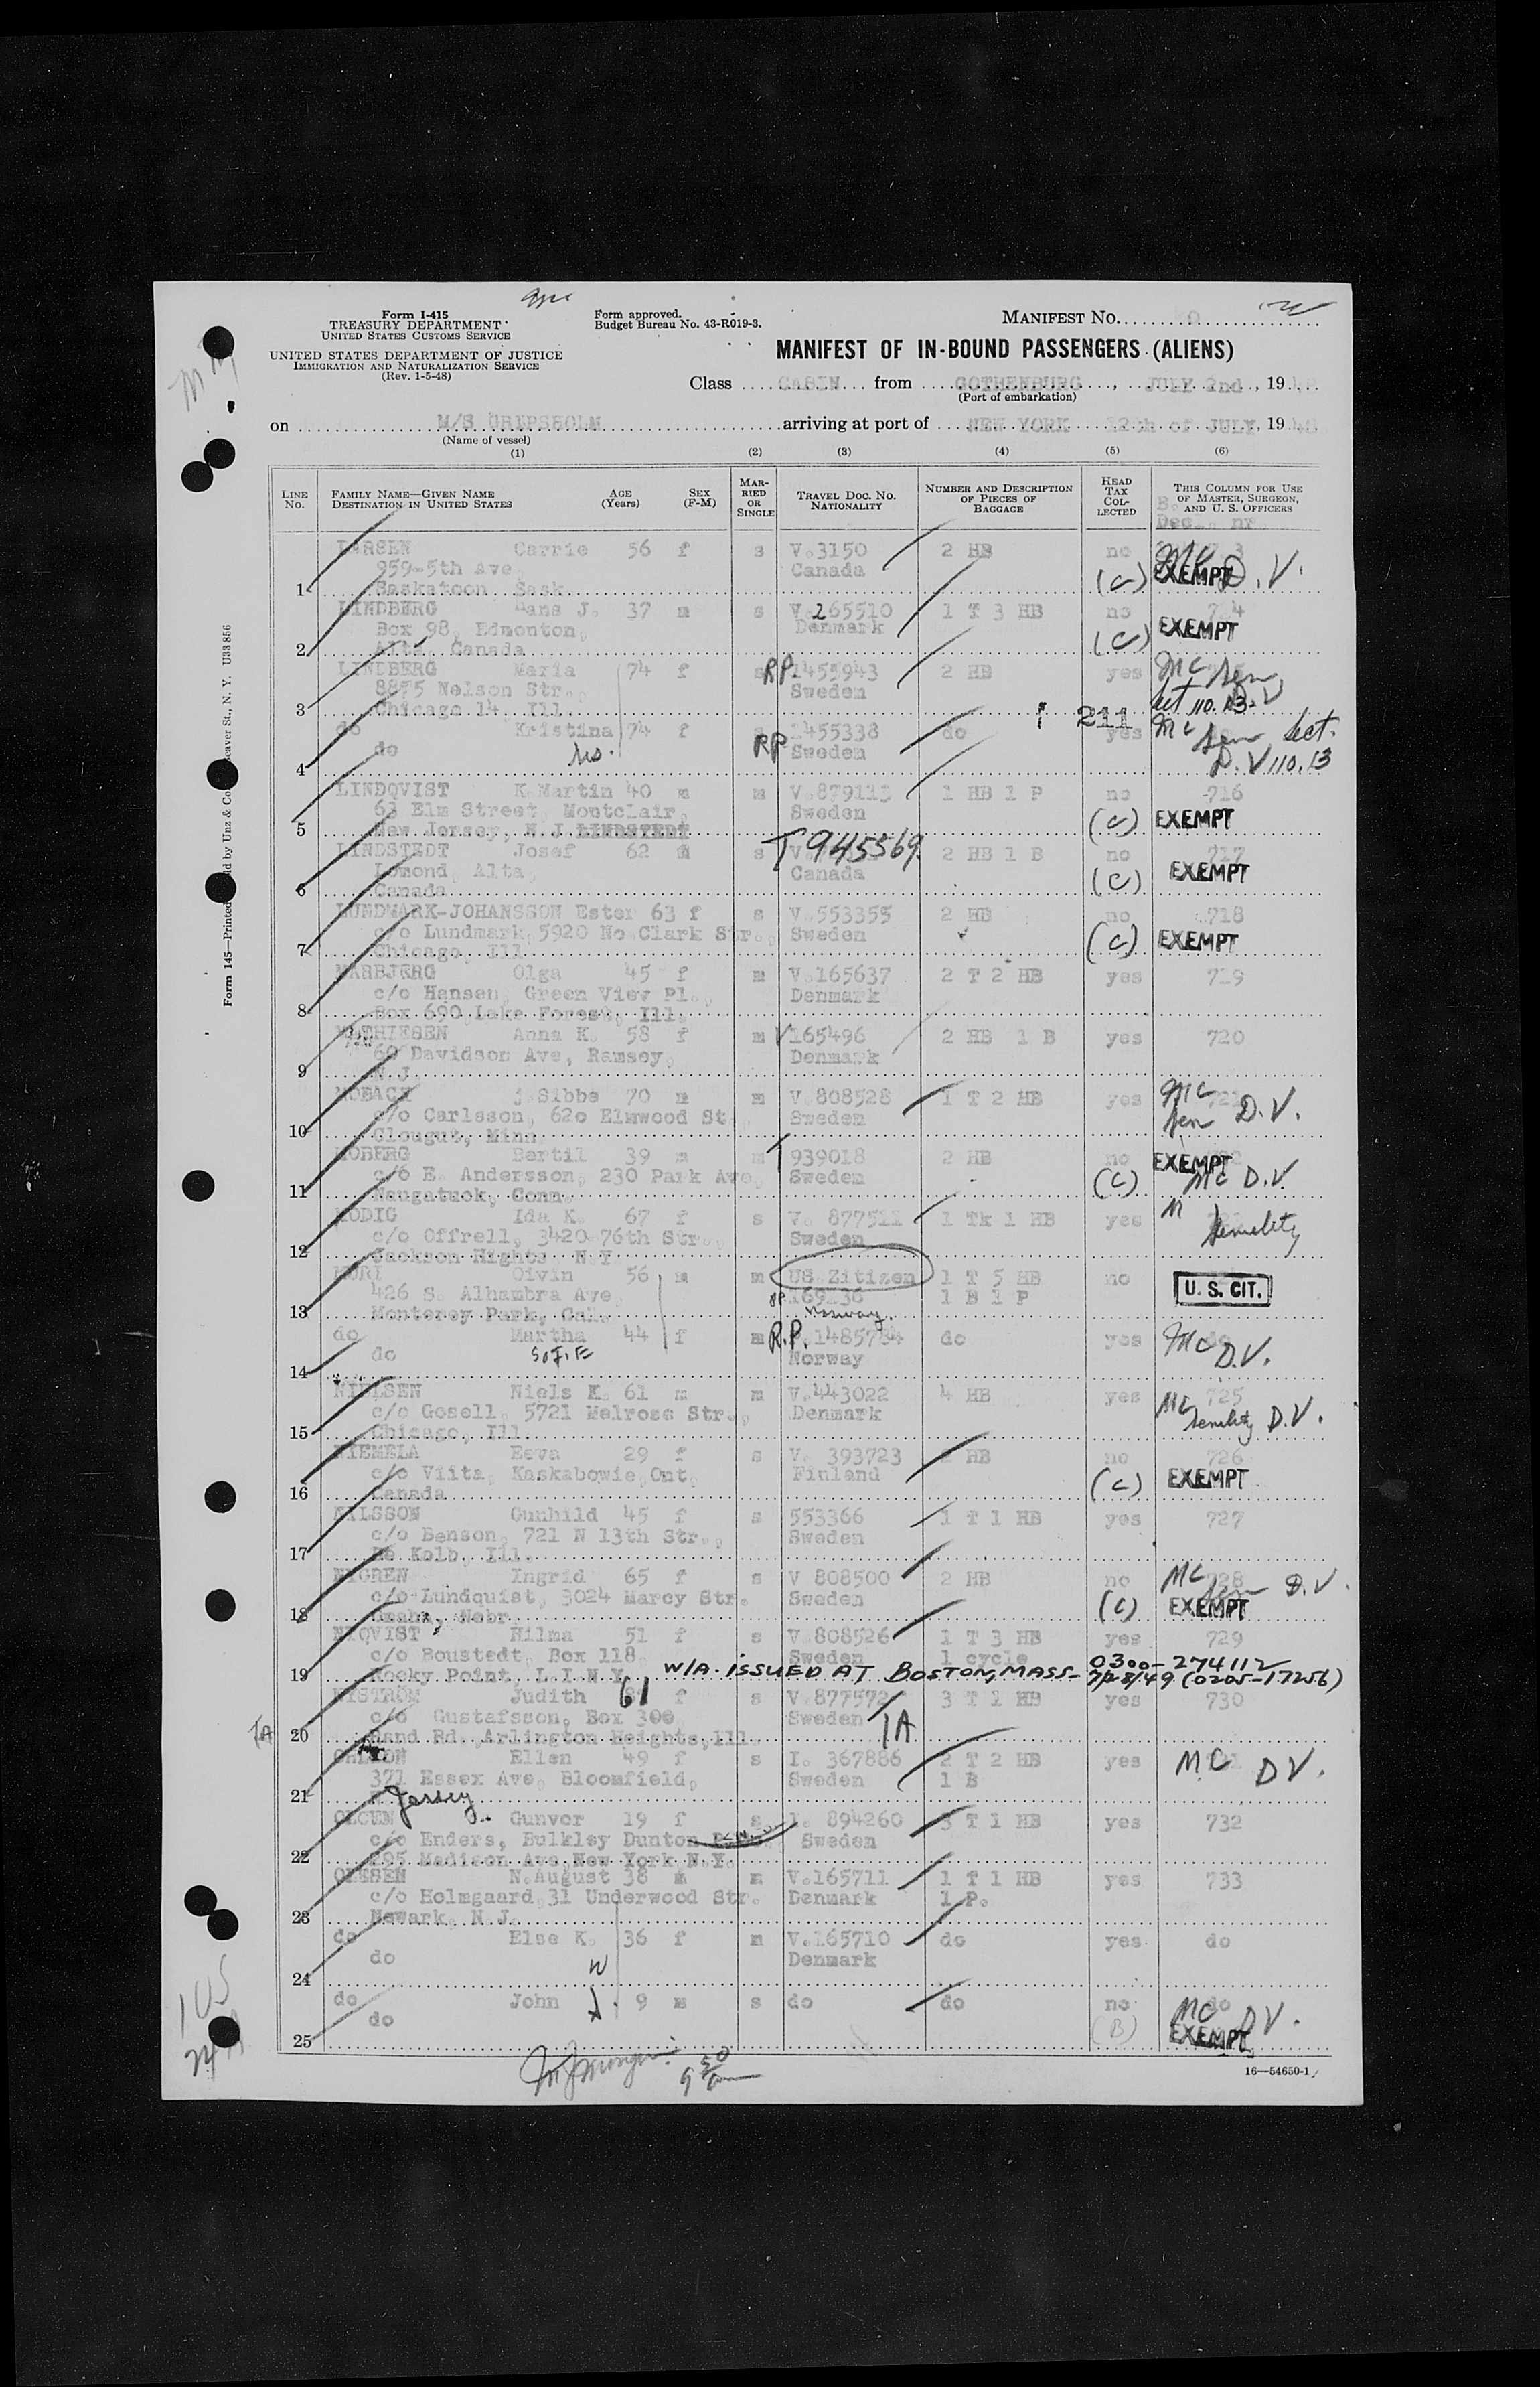 Form I-415
TREASURY DEPARTMENT
UNITED STATES CUSTOMS SERVICE
UNITED STATES DEPARTMENT OF JUSTICE
IMMIGRATION AND NATURALIZATION SERVICE
(Rev. 1-5-48)
Form approved.
Budget Bureau No. 43-R019-3.
MANIFEST NO.
MANIFEST OF IN-BOUND PASSENGERS (ALIENS)
Class CABIN from GOTHENBURG, JULY 2nd, 1948
(Port of embarkation)
on M/S GRIPSHOLM arriving at port of NEW YORK 12th of JULY, 1948
(Name of vessel)
(1) (2) (3) (4) (5) (6)
LINE No. FAMILY NAME—GIVEN NAME DESTINATION IN UNITED STATES AGE (Years) SEX (F-M) MARRIED OR SINGLE TRAVEL DOC. NO. NATIONALITY NUMBER AND DESCRIPTION OF PIECES OF BAGGAGE HEAD TAX COLLECTED THIS COLUMN FOR USE OF MASTER, SURGEON, AND U. S. OFFICERS
LARSEN Carrie 56 f s V.3150 2 HB no MC D.V.
959-5th Ave Canada (C) EXEMPT
1 Saskatoon Sask.
LINDBERG Hans J. 37 m s V.265510 1 T 3 HB no 714
Box 98, Edmonton, Denmark (C) EXEMPT
2 Alta. Canada
LINDBERG Maria 74 f s RP 1455943 2 HB yes MC Sen
8875 Nelson Str., Sweden Sect 110.13 D.V
3 Chicago 14, Ill.
211
do Kristina 74 f s RP 1455338 do yes MC Sen Sect.
do Sweden D.V 110.13
4
LINDQVIST K.Martin 40 m m V.879113 1 HB 1 P no 716
63 Elm Street, Montclair, Sweden (C) EXEMPT
5 New Jersey, N.J LINDSTEDT
LINDSTEDT Josef 62 m s T 945569 2 HB 1 B no 717
Lomond, Alta Canada (C) EXEMPT
6 Canada
LUNDMARK-JOHANSSON Ester 63 f s V.553355 2 HB no 718
c/o Lundmark, 5920 No Clark Str., Sweden (C) EXEMPT
7 Chicago, Ill.
MARBJERG Olga 45 f m V.165637 2 T 2 HB yes 719
c/o Hansen, Green View Pl., Denmark
8 Box 690, Lake Forest, Ill.
MATHIESEN Anna K. 58 f m V165496 2 HB 1 B yes 720
60 Davidson Ave, Ramsey, Denmark
9 N.J.
MOBACK J.Sibbe 70 m m V.808528 1 T 2 HB yes MC 721
c/o Carlsson, 620 Elmwood St Sweden Sen D.V.
10 Clougut, Minn
MOBERG Bertil 39 m m T 939018 2 HB no EXEMPT
c/o E. Andersson, 230 Park Ave, Sweden (C) MC D.V.
11 Naugatuck, Conn.
MODIG Ida K. 67 f s V. 877511 1 Tk 1 HB yes M
c/o Offrell, 3420-76th Str., Sweden Senility
12 Jackson Hights N.Y.
MORI Oivin 56 m m US Zitizen 1 T 5 HB no U. S. CIT.
426 S. Alhambra Ave, Norway 1 B 1 P
13 Monterey Park, Cal.
do Martha SOFIE 44 f m R.P. do yes MC D.V.
do Norway
14
NIELSEN Niels K. 61 m m V.443022 4 HB yes 725
c/o Gosell, 5721 Melrose Str., Denmark MC Senility D.V.
15 Chicago, Ill.
NIEMELA Eeva 29 f s V. 393723 2 HB no 726
c/o Viita, Kaskabowie, Ont. Finland (C) EXEMPT
16 Canada
NILSSON Gunhild 45 f s 553366 1 T 1 HB yes 727
c/o Benson, 721 N 13th Str., Sweden
17 De Kolb, Ill.
NYGREN Ingrid 65 f s V 808500 2 HB no MC 728
c/o Lundquist, 3024 Marcy Str. Sweden Sen D.V.
18 Omaha, Nebr. (C) EXEMPT
NYQVIST Hilma 51 f s V 808526 1 T 3 HB yes 729
c/o Boustedt, Box 118 Sweden 1 cycle
19 Rocky Point, L.I.N.Y. W/A. ISSUED AT BOSTON, MASS- 0300-274112 7/28/49 (0205-17256)
NYSTROM Judith 61 f s V 877572 3 T 1 HB yes 730
c/o Gustafsson, Box 300 Sweden TA
TA 20 Rand Rd., Arlington Heights, Ill.
Ellen 49 f s I. 367886 2 T 2 HB yes MC D.V.
371 Essex Ave, Bloomfield, Sweden 1 B
21 Jersey
OLCEN Gunvor 19 f s 894260 3 T 1 HB yes 732
c/o Enders, Bulkley Dunton Sweden
22 295 Madison Ave, New York, N.Y.
OLESEN N.August 38 m m V.165711 1 T 1 HB yes 733
c/o Holmgaard, 31 Underwood Str. Denmark 1 P.
23 Newark, N.J.
do Else K. 36 f m V.165710 do yes do
do W Denmark
24
do John J. 9 m s do do no do
do (B) MC D.V.
25 EXEMPT
9 30 am
16—54650-1
105